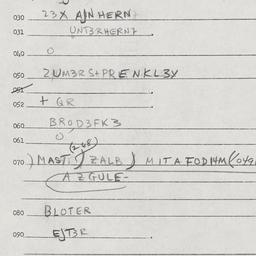 030 23X AJNHERN7
031 UNT3RHERN7
040 O
050 2UM3RS+PRENKL3Y
051
052 + QR
060 BROD3FK3
061 O
070 ) MAST( ) ZALB ) MITAFODI4M
AZGULE-
080 BLOTER
090 EJT3R